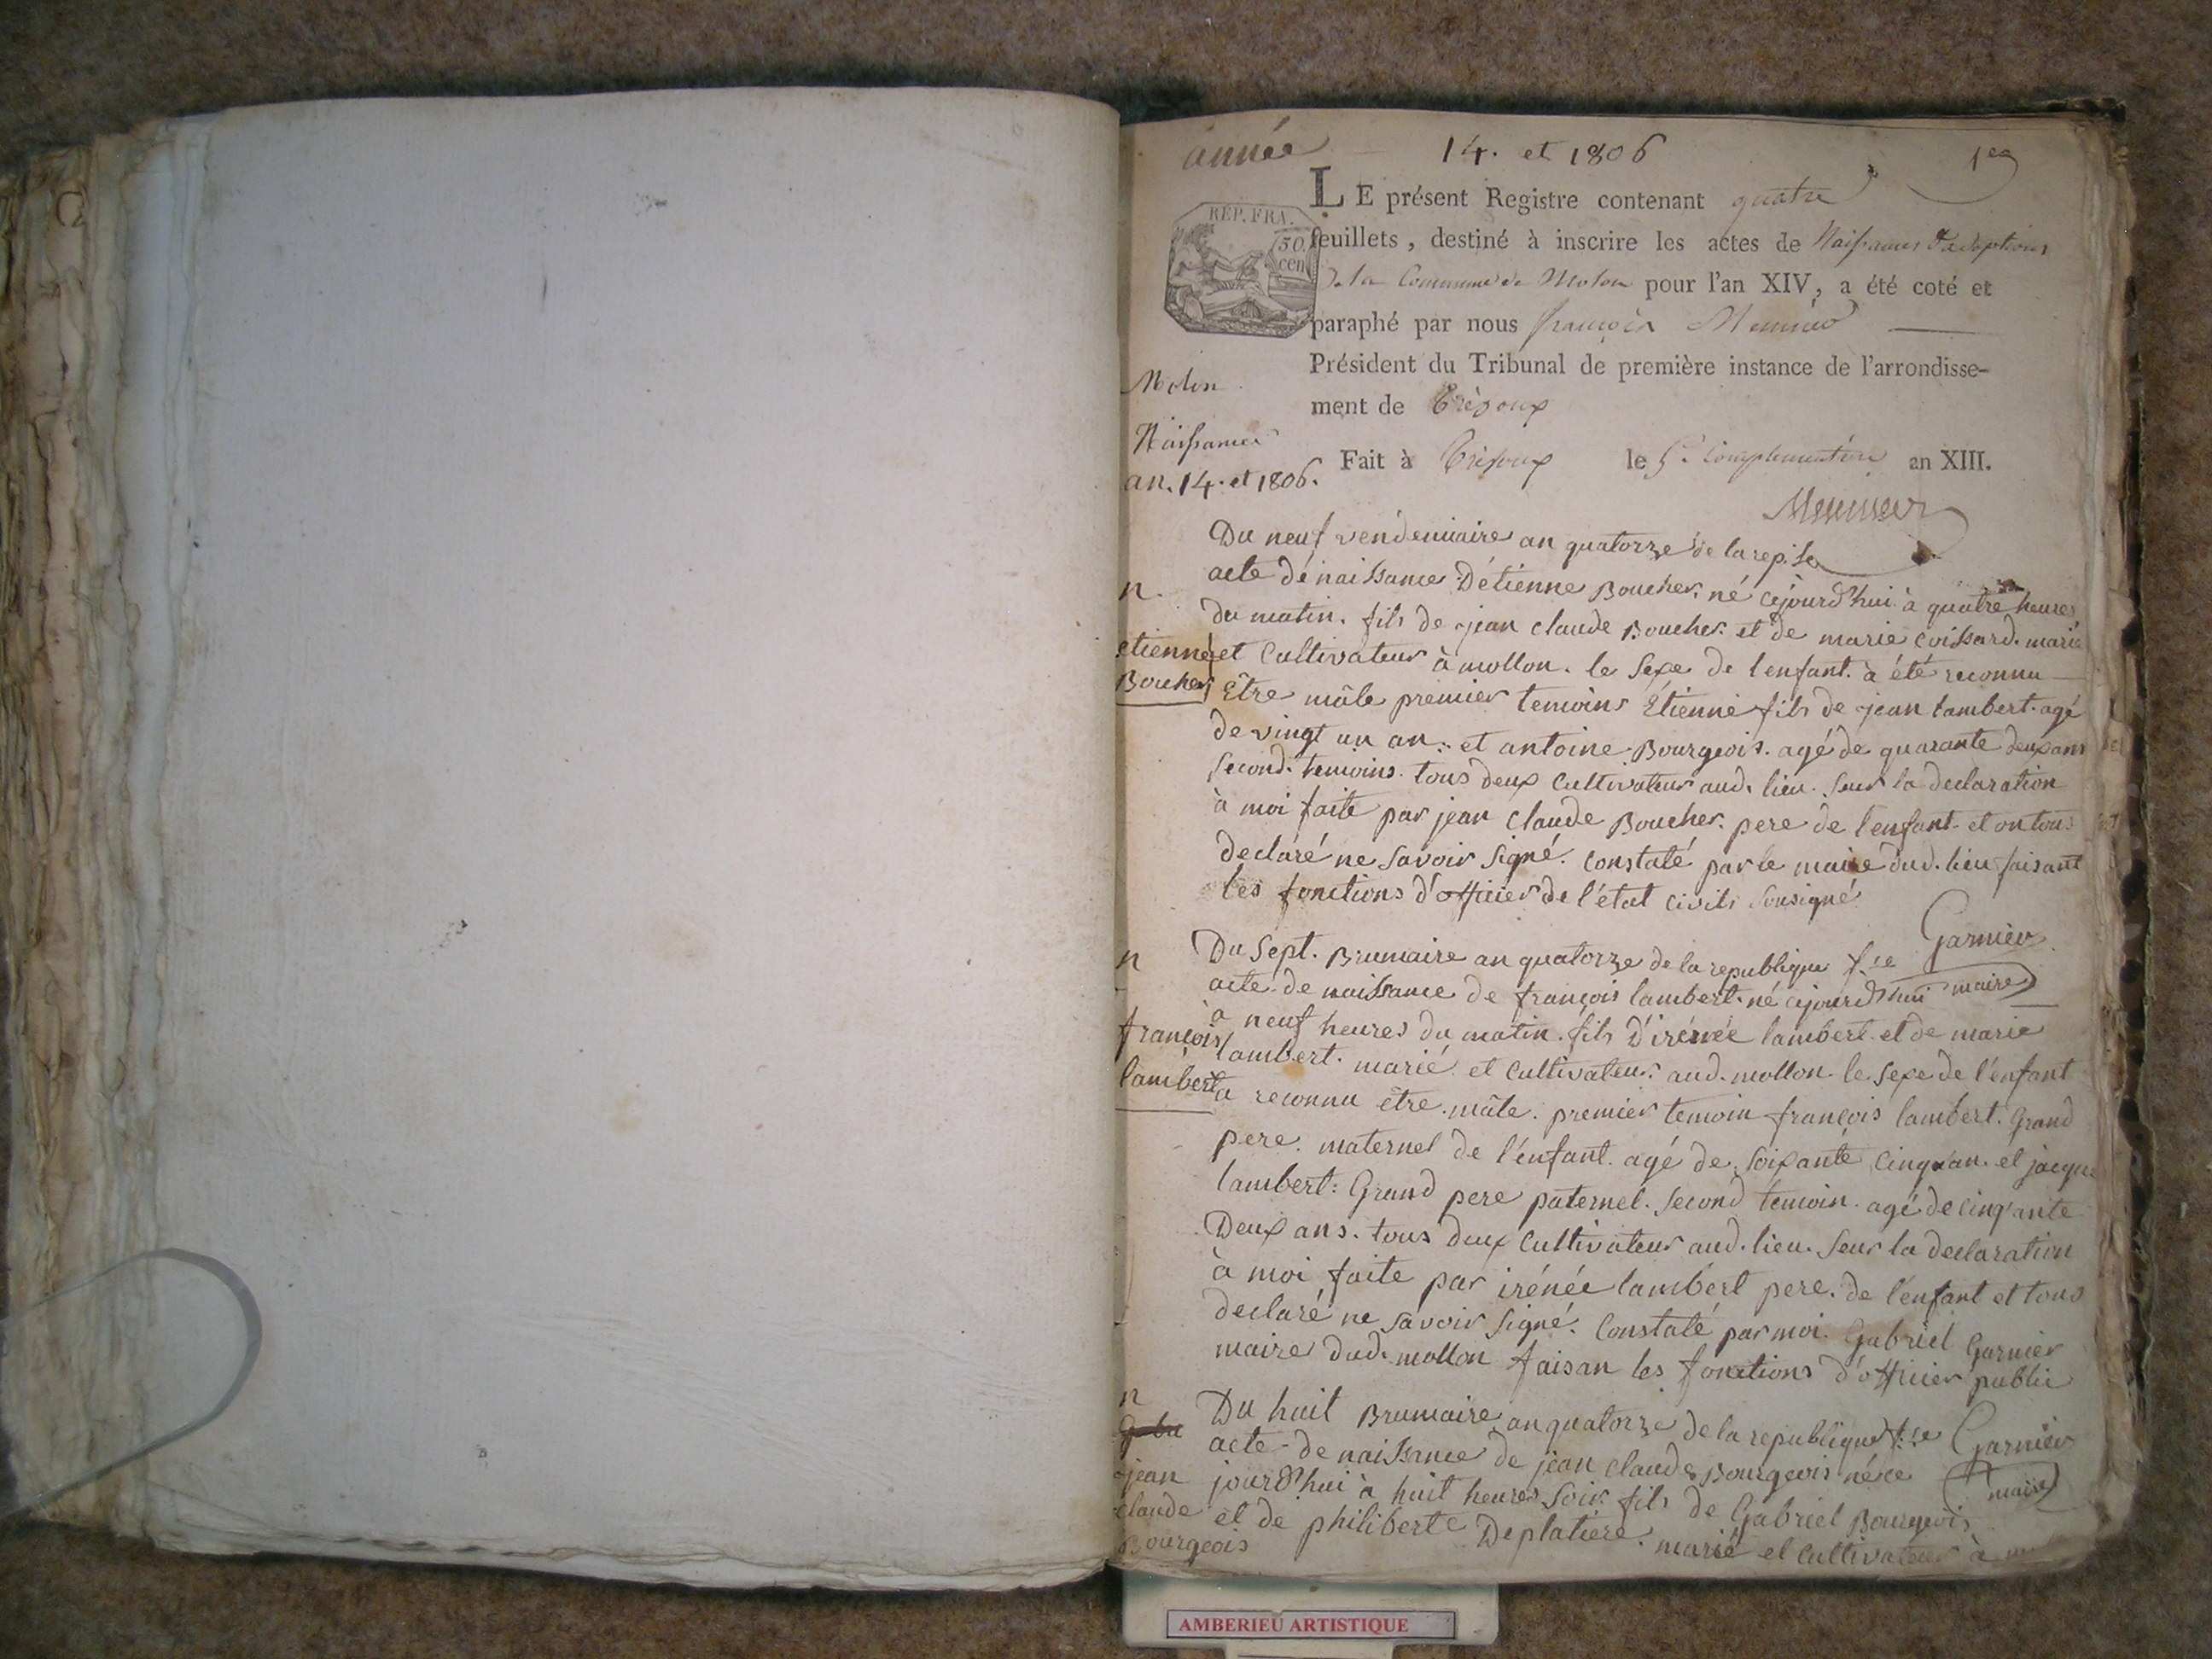 année 14. et 1806
REP. FRA.
50
cen
LE présent Registre contenant quatre
feuillets, destiné à inscrire les actes de Naissances & adoptions
de la Commune de Molon pour l'an XIV, a été coté et
paraphé par nous françois Meunier
Président du Tribunal de première instance de l'arrondisse-
ment de Trévoux
Fait à Trévoux le 5e Complémentaire an XIII.
Meunier
Molon
Naissances
an. 14. et 1806.
Du neuf vendemiaire an quatorze de la rep. fse
n.
etienne
Boucher
acte dé naissance D'étienne Boucher. né cejourd'hui à quatre heures
du matin. fils de jean claude Boucher. et de marie Coissard. marié
et Cultivateur à mollon. le Sexe de l'enfant. à été reconnu
Être mâle premier temoins Étienne fils de jean lambert. agé
de vingt un an. et antoine Bourgeois. agé de quarante deux ans
Second. temoins. tous deux Cultivateur aud. lieu. Seur la declaration
à moi faite par jean Claude Boucher. pere de l'enfant. et on tous
declaré ne Savoir Signé. Constaté par le maire dud. lieu faisant
les fonctions d'officier de l'état civils Sousigné
Garnier
maire
n
françois
lambert
Du Sept. Brumaire an quatorze de la republique fse
acte de naissance de françois lambert. né cejourd'hui
à neuf heures du matin. fils D'irénée lambert. et de marie
lambert. marié et Cultivateur. aud. mollon. le Sexe de l'enfant
a reconnu être mâle. premier temoin françois lambert. Grand
pere. maternel de l'enfant. agé de Soixante Cinq an. et jacque
lambert: Grand pere paternel. Second temoin. agé de Cinq'ante
Deux ans. tous deux Cultivateur aud. lieu. Seur la declaration
à moi faite par irénée lambert pere. de l'enfant et tous
declaré ne Savoir Signé. Constaté par moi. Gabriel Garnier
maire dud. mollon faisan les fonctions d'officier public
Garnier
maire
n
jean
claude
Bourgeois
Du huit Brumaire an quatorze de la republique fse
acte de naissance de jean claude Bourgeois né ce
jourd'hui à huit heures Soir. fils de Gabriel Bourgeois
et de philiberte Deplatiere. marié et cultivateur à
AMBERIEU ARTISTIQUE